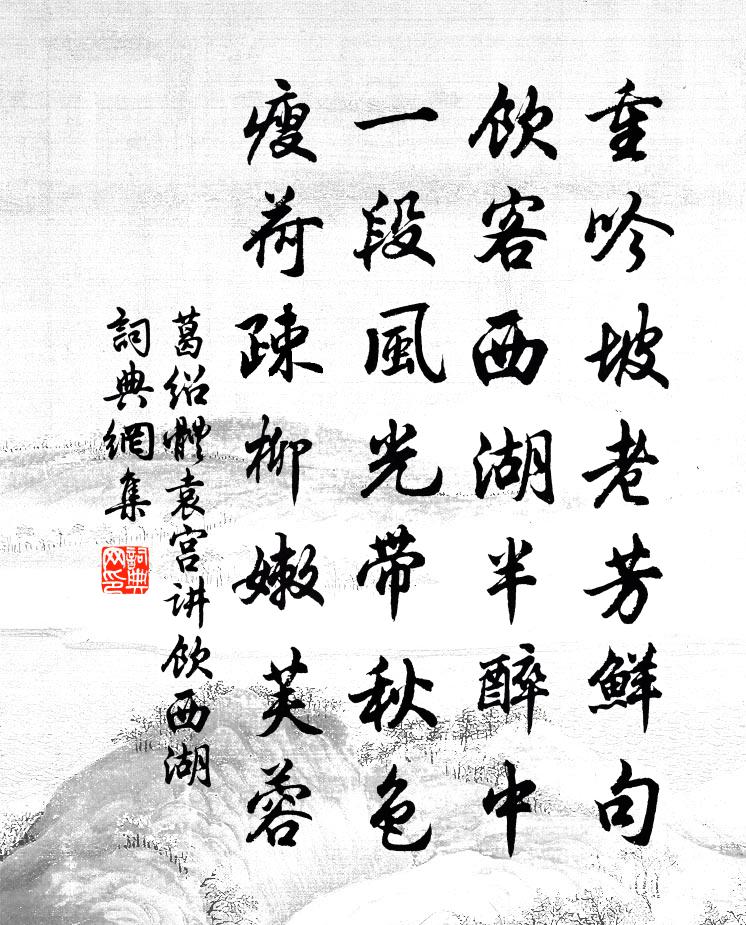 重吟坡老芳鮮句
飲客西湖半醉中
一段風光帶秋色
瘦荷疎柳嫩芙蓉
葛绍體袁宫讲飲西湖
詞典網集
詞典网印